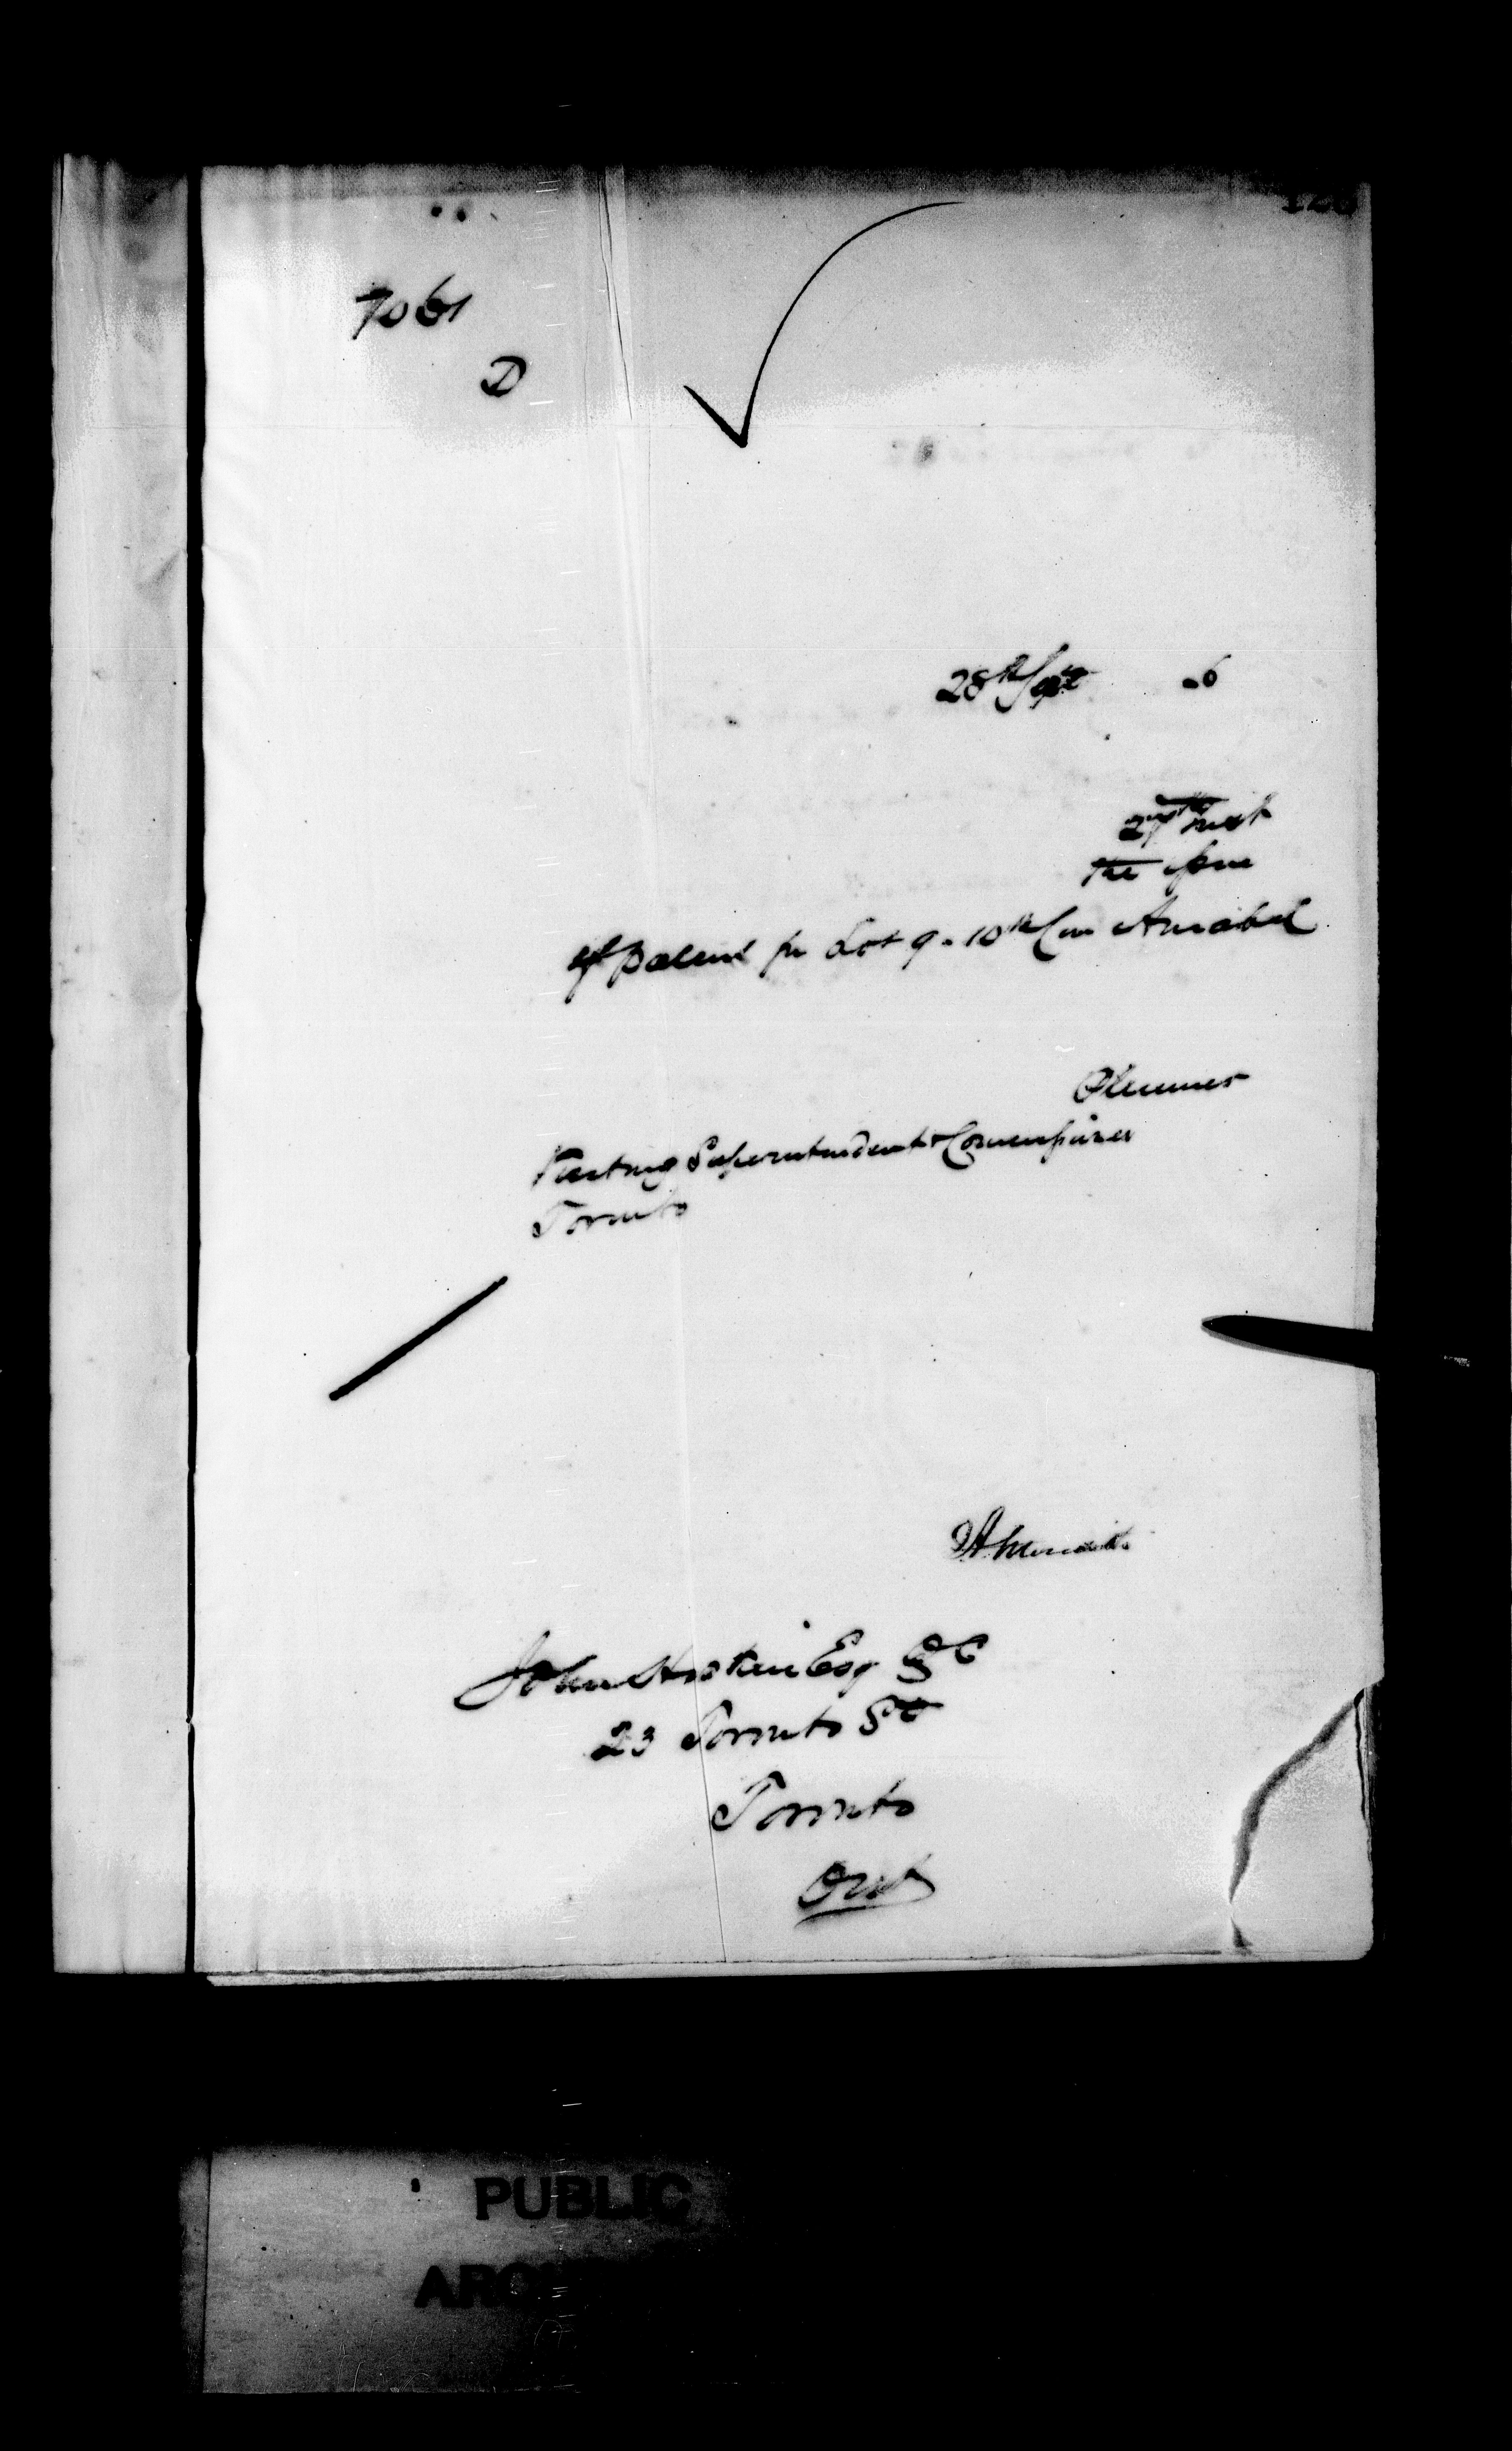 7061
D
28th Sept -6
27th inst
the issue
of Patent for Lot 9 - 10th Con Amabel
Plummer
Visiting Superintendent & Commissioner
Toronto
John Hoskin Esq QC
23 Toronto St
Toronto
Ont
PUBLIC